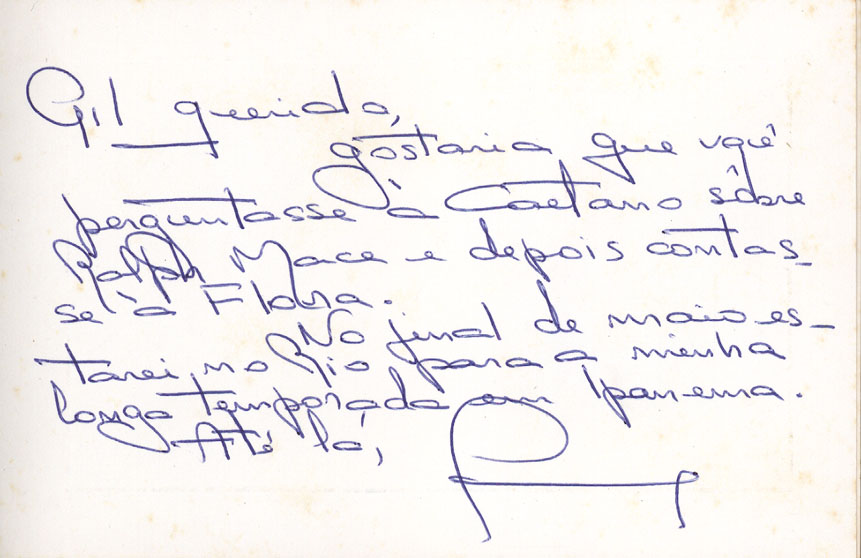 Gil querido,
gostaria que você
perguntasse à Caetano sôbre
Ralph Mace e depois contas-
se à Flora.
No final de maio es-
tarei, no Rio para a minha
longa temporada em Ipanema.
Até lá,